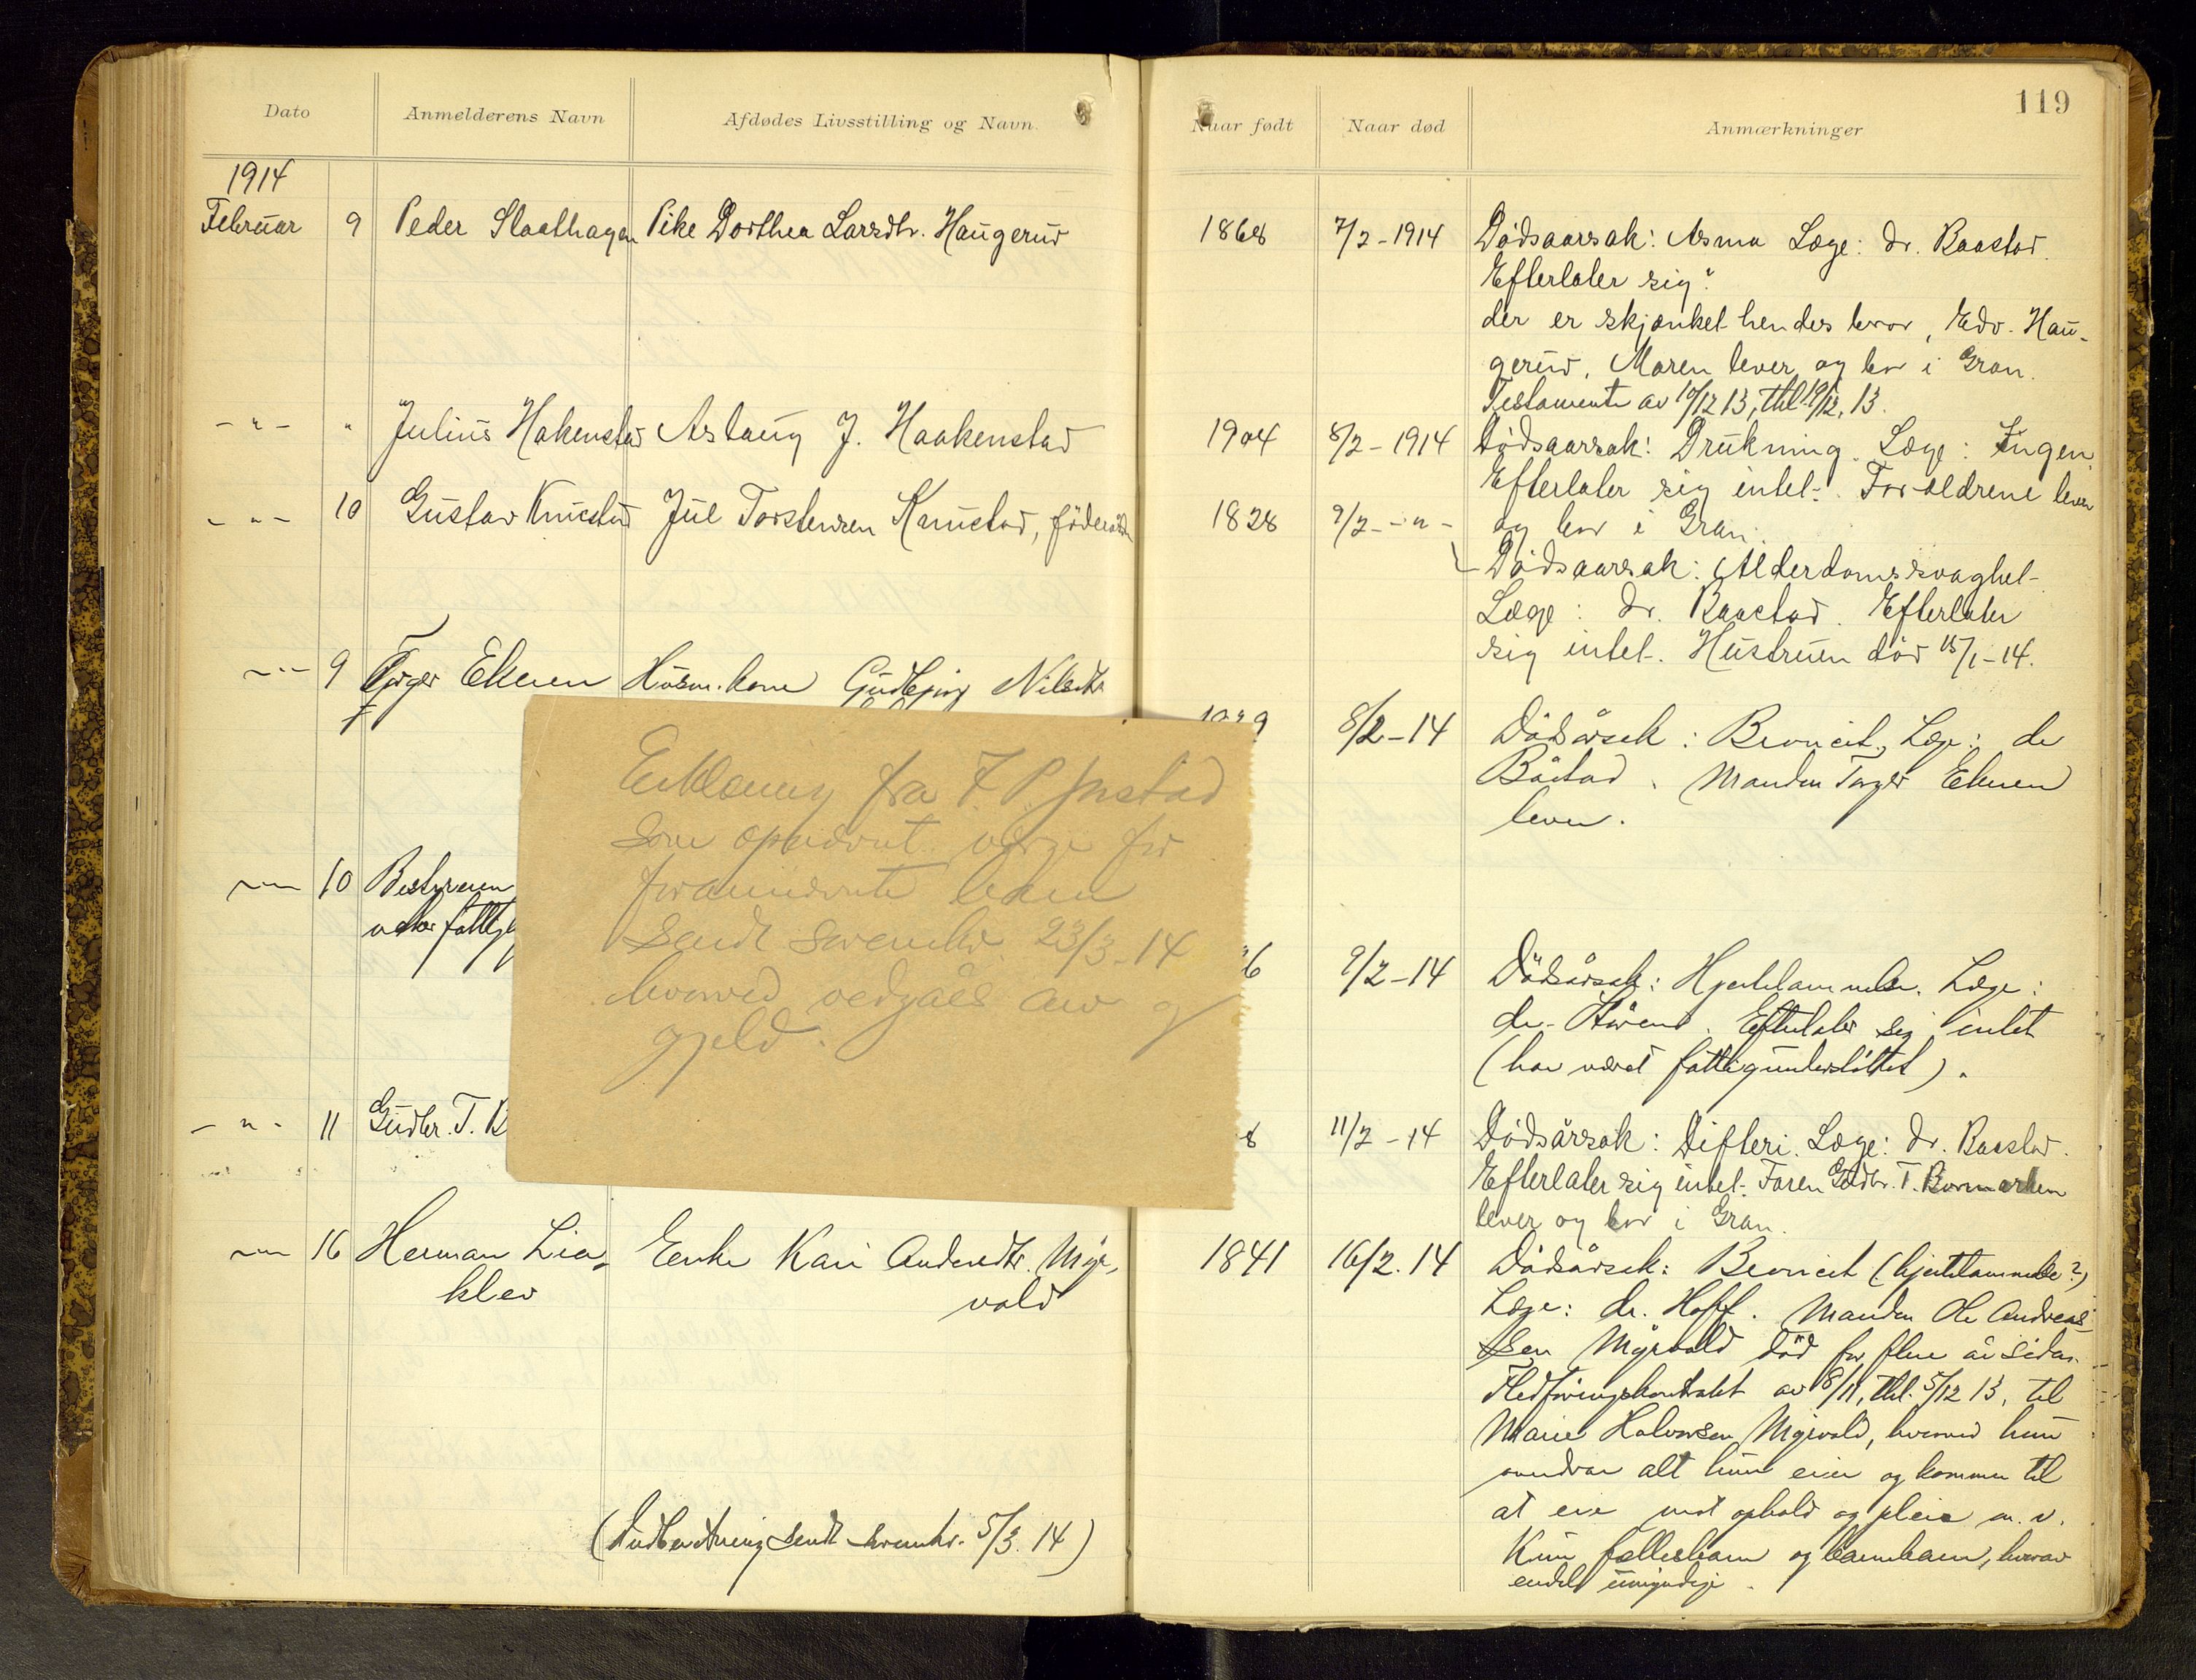 119
Dato Anmelderens Navn Afdødes Livsstilling og Navn. Naar født Naar død Anmærkninger
1914
Februar 9 Peder Slaathagen Pike Dorthea Larsdtr. Haugerud 1868 7/2-1914 Dødsaarsak: Asma Læge: Dr. Baastad.
Efterlater sig:
der er skjænket hendes bror, Edv. Hau-
gerud. Moren lever og bor i Gran.
Testamente av 10/12 13, thl. 19/12. 13.
-"- " Julius Hakenstad Aslaug J. Haakenstad 1904 8/2-1914 Dødsaarsak: Drukning. Læge: Ingen.
Efterlater sig intet. Forældrene lever
og bor i Gran.
-"- 10 Gustav Knustad Jul Torstensen Knustad, föderåd 1828 9/2 -"-
Dødsaarsak: Alderdomssvaghet
Læge: Dr. Baastad. Efterlater
sig intet. Hustruen død 15/1-14.
-"- 9 Torger Ekeren Husm. kone Gudbjørg Nilsdtr. 8/2-14 Dödsårsak: Bronkit, Læge: dr
Båstad. Manden Torger Ekeren
lever.
Erklæring fra F. P. Jnstad
som opnævnt værge for
foranævnte
sendt sorenskr. 23/3-14
hvorved vedgåes arv og
gjeld.
-"- 10 Bestyreren 6 9/2-14 Dödsårsak: Hjertelammelse. Læge:
dr. . Efterlater sig intet
(har været fattigunderstöttet).
-"- 11 Gudbr. T. B 8 11/2-14 Dödsårsak: Difteri. Læge: Dr. Baastad.
Efterlater sig intet. Faren Gudbr. T. Bormarken
lever og bor i Gran.
-"- 16 Herman Lia- Enke Kari Andersdtr. Myr- 1841 16/2.14 Dödsårsak: Bronkit (hjertelammelse?)
klev vold
Læge: dr. Hoff. Manden Ole Andreas-
sen Myrvold död for flere år siden.
Fledföringskontrakt av 8/11, thl. 5/12 13, til
Marie Halvorsen Myrvold, hvorved hun
overdrar alt hun eier og kommer til
at eie mot ophold og pleie m. v.
Kun fællesbarn og barnebarn, hvorav
endel umyndige.
(Indberetning sendt sorenskr. 5/3. 14)